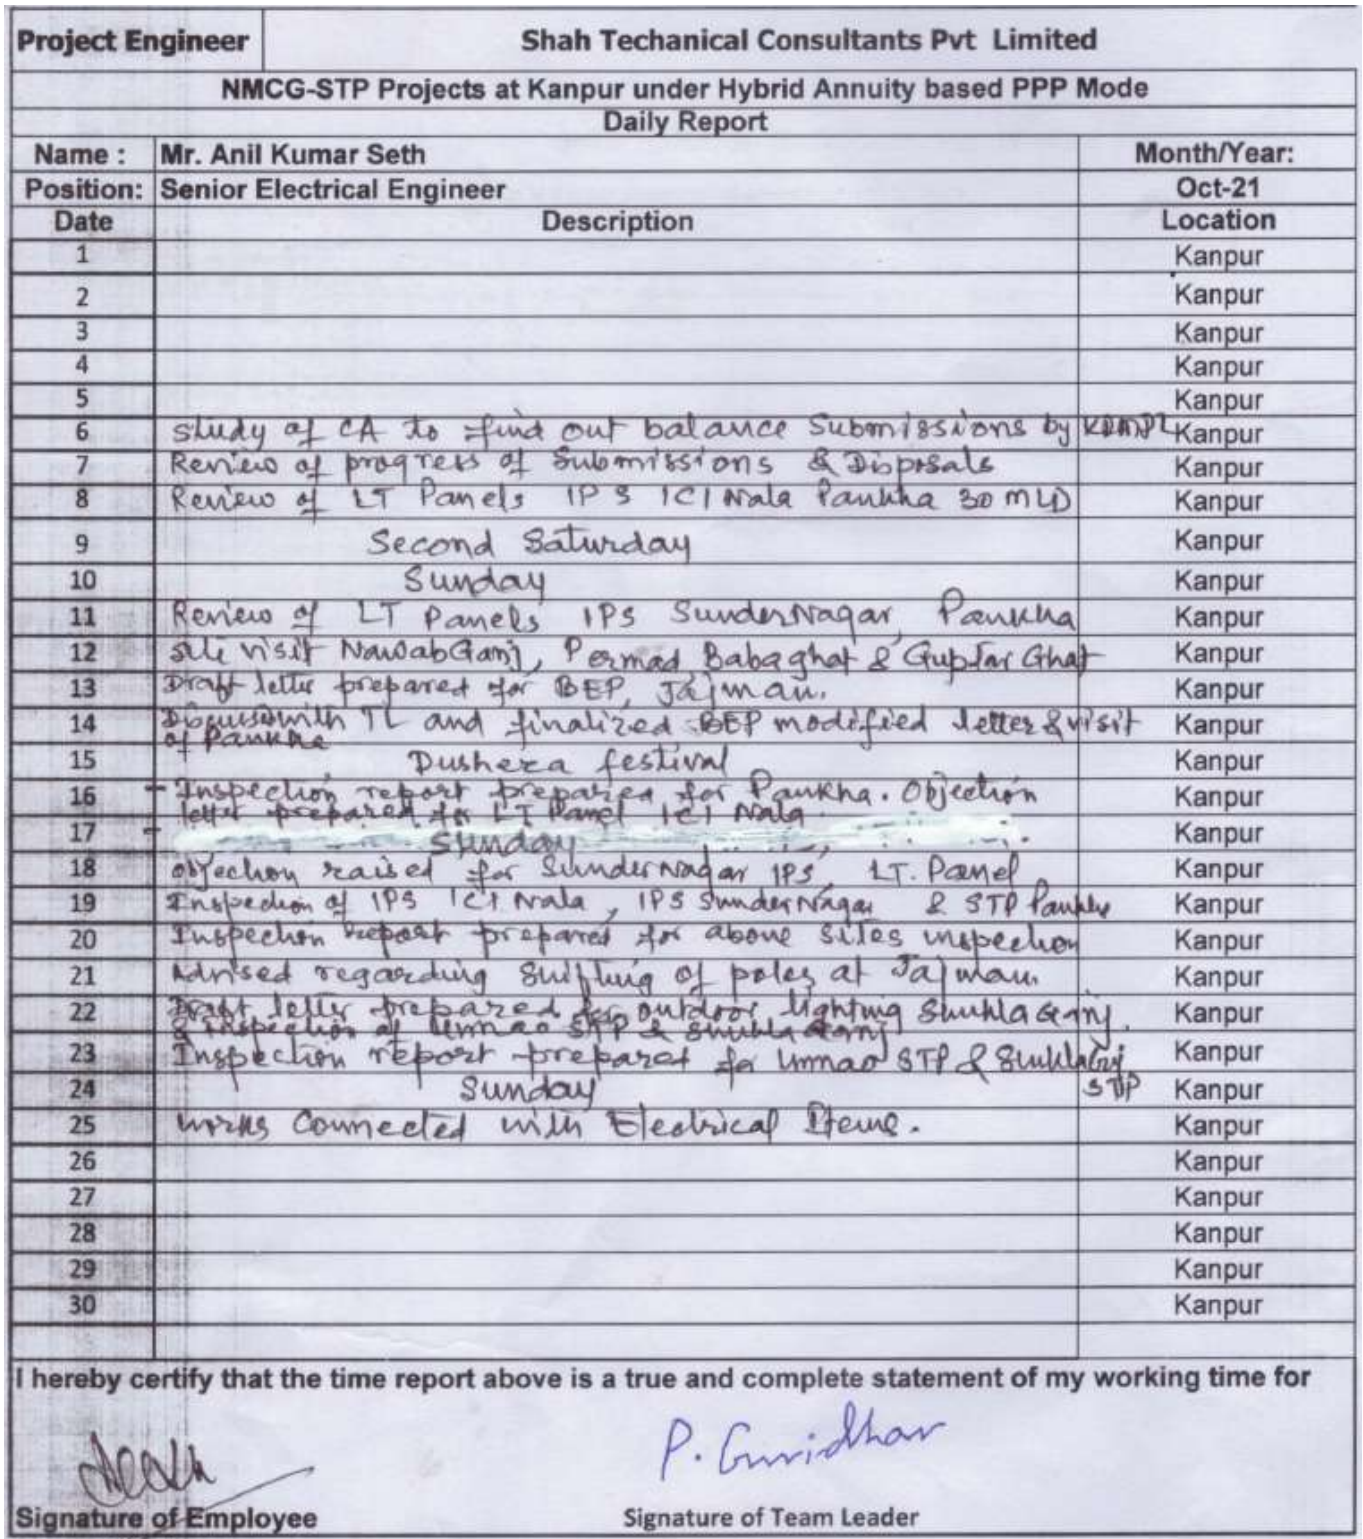 Project Engineer Shah Techanical Consultants Pvt Limited
NMCG-STP Projects at Kanpur under Hybrid Annuity based PPP Mode
Daily Report
Name : Mr. Anil Kumar Seth Month/Year:
Position: Senior Electrical Engineer Oct-21
Date Description Location
1 Kanpur
2 Kanpur
3 Kanpur
4 Kanpur
5 Kanpur
6 study of CA to find out balance Submissions by KRMPL Kanpur
7 Review of progress of Submissions & Disposals Kanpur
8 Review of LT Panels IPS ICI Nala Pankha 30 MLD Kanpur
9 Second Saturday Kanpur
10 Sunday Kanpur
11 Review of LT Panels IPS SunderNagar, Pankha Kanpur
12 site visit NawabGanj, Permad Babaghat & Guptar Ghat Kanpur
13 Draft letter prepared for BEP, Jajmau. Kanpur
14 Discuss with TL and finalized BEP modified letter & visit Kanpur
of Pankha
15 Dushera festival Kanpur
16 - Inspection report prepared for Pankha. Objection Kanpur
letter prepared for LT Panel ICI Nala
17 - Sunday Kanpur
18 objection raised for SunderNagar IPS, LT. Panel Kanpur
19 Inspection of IPS ICI Nala, IPS SunderNagar & STP Pankha Kanpur
20 Inspection report prepared for above sites inspection Kanpur
21 Advised regarding shifting of poles at Jajmau. Kanpur
22 Draft letter prepared for outdoor lighting Shuklaganj. Kanpur
& inspection of Unnao STP & Shuklaganj
23 Inspection report prepared for Unnao STP & Shuklagnj Kanpur
STP
24 Sunday Kanpur
25 works Connected with Electrical Items. Kanpur
26 Kanpur
27 Kanpur
28 Kanpur
29 Kanpur
30 Kanpur
I hereby certify that the time report above is a true and complete statement of my working time for
P. Guridhar
Signature of Employee Signature of Team Leader